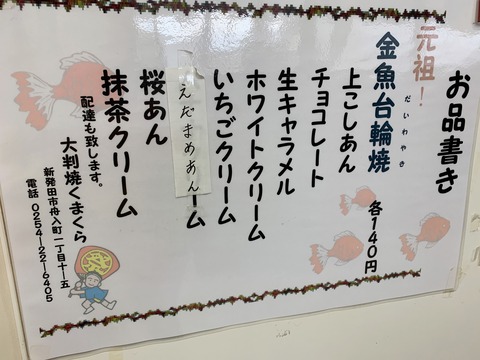 お品書き
元祖！
金魚台輪焼
だいわやき
各140円
上こしあん
チョコレート
生キャラメル
ホワイトクリーム
いちごクリーム
えだまめあん
ーム
桜あん
抹茶クリーム
配達も致します。
大判焼くまくら
新発田市舟入町一丁目十ー五
電話 0254ー22ー6405